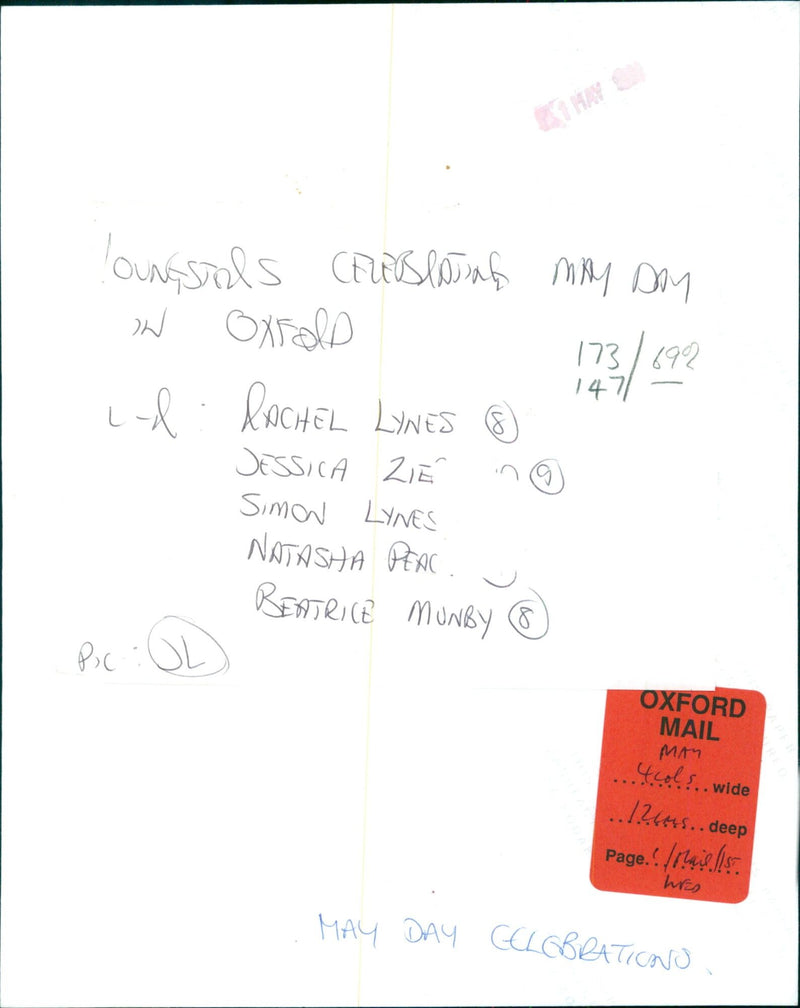 1 MAY
YOUNGSTERS CELEBRATING MAY DAY
IN OXFORD
173/69%
147/
L-R: RACHEL LYNES (8)
JESSICA ZIE (9)
SIMON LYNES
NATASHA PEAC
BEATRICE MUNBY (8)
PIC: JL
OXFORD
MAIL
MAY
4cols wide
12cms deep
Page 1/Mail/1ST
WED
MAY DAY CELEBRATIONS.